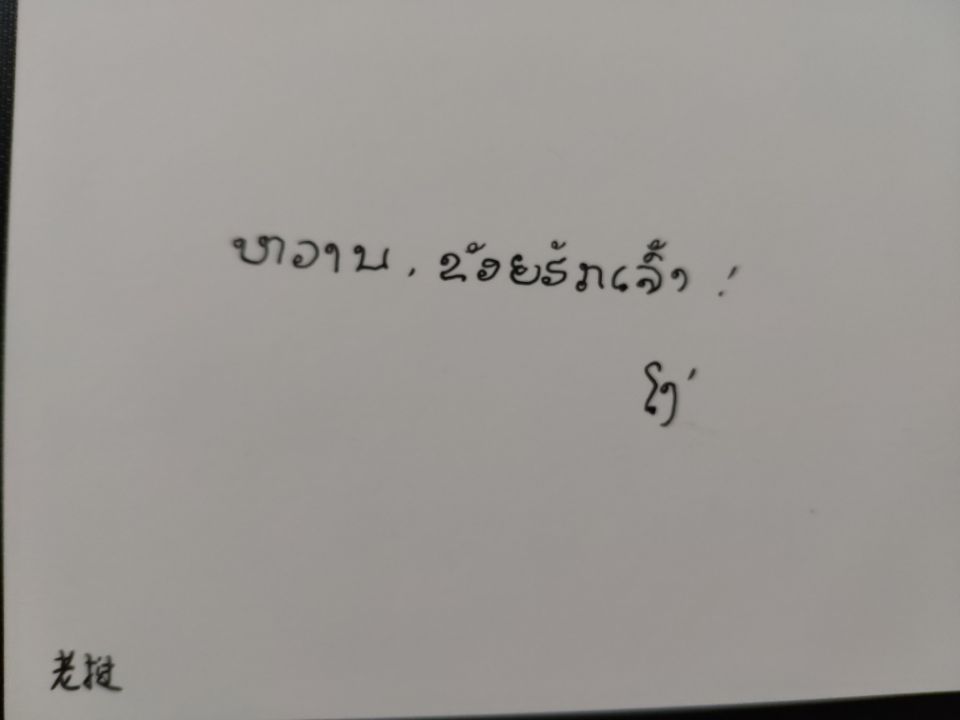 ຫວານ, ຂ້ອຍຮັກເຈົ້າ!
ໂງ່
老挝